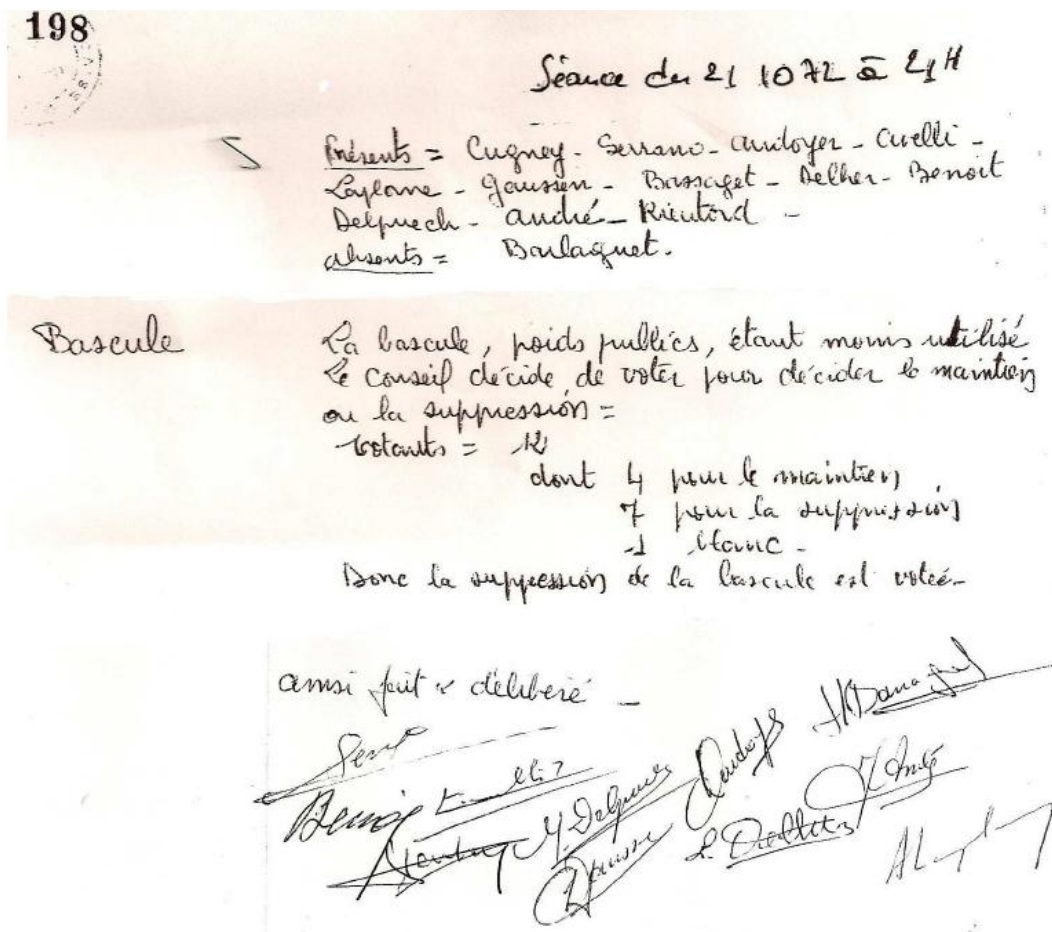 198
Séance du 21 10 72 à 21H
Présents = Cugney - Serrano - Audoyer - Civelli -
Laplane - Gaussen - Bassaget - Delher - Benoit
Delpuech - André - Rieutord -
absents = Barlaguet.
Bascule
La bascule, poids publics, étant moins utilisé
Le conseil décide de voter pour décider le maintien
ou la suppression =
Votants = 12
dont 4 pour le maintien
7 pour la suppression
1 blanc -
Donc la suppression de la bascule est votée -
ainsi fait & délibéré -
Benoit